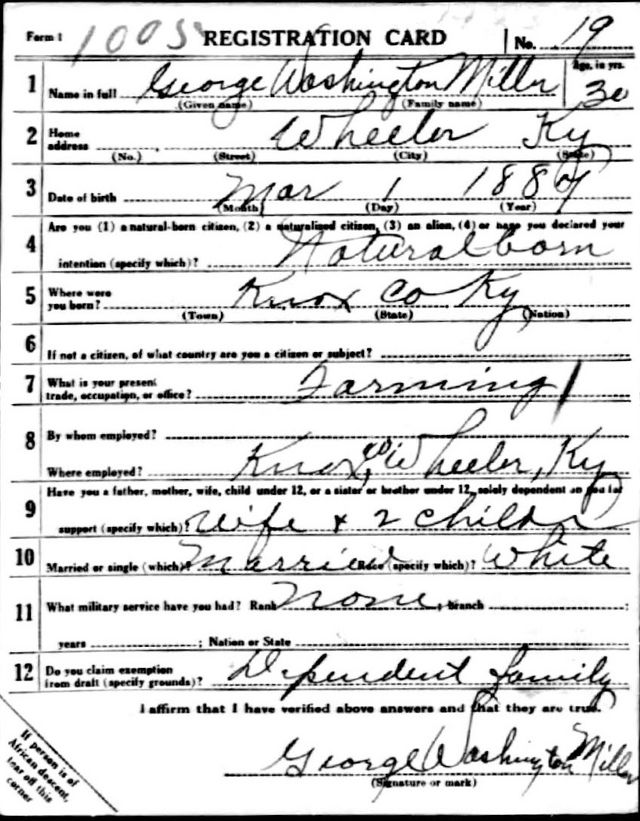 Form 1 1005 REGISTRATION CARD No. 19
1 Name in full George Washington Miller Age, in yrs. 30
(Given name) (Family name)
2 Home address Wheeler Ky
(No.) (Street) (City) (State)
3 Date of birth Mar 1 1887
(Month) (Day) (Year)
4 Are you (1) a natural-born citizen, (2) a naturalized citizen, (3) an alien, (4) or have you declared your
intention (specify which)? Natural born
5 Where were you born? Knox Co Ky
(Town) (State) (Nation)
6 If not a citizen, of what country are you a citizen or subject?
7 What is your present trade, occupation, or office? Farming
8 By whom employed?
Where employed? Knox Co Wheeler, Ky
9 Have you a father, mother, wife, child under 12, or a sister or brother under 12, solely dependent on you for
support (specify which)? Wife + 2 childn
10 Married or single (which)? Married Race (specify which)? White
11 What military service have you had? Rank None, branch ;
years ; Nation or State
12 Do you claim exemption from draft (specify grounds)? Dependent family
I affirm that I have verified above answers and that they are true.
George Washington Miller
(Signature or mark)
If person is of
African descent,
tear off this
corner